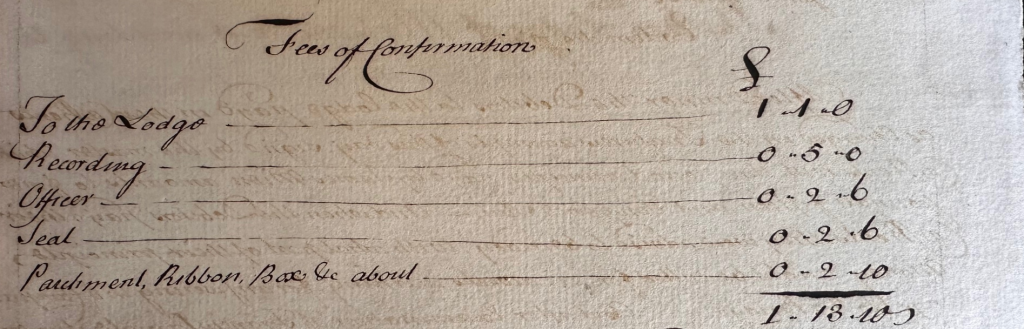 Fees of Confirmation
£
To the Lodge 1 - 1 - 0
Recording 0 - 5 - 0
Officer 0 - 2 - 6
Seal 0 - 2 - 6
Parchment, Ribbon, Box &c about 0 - 2 - 10
1 - 13 - 10